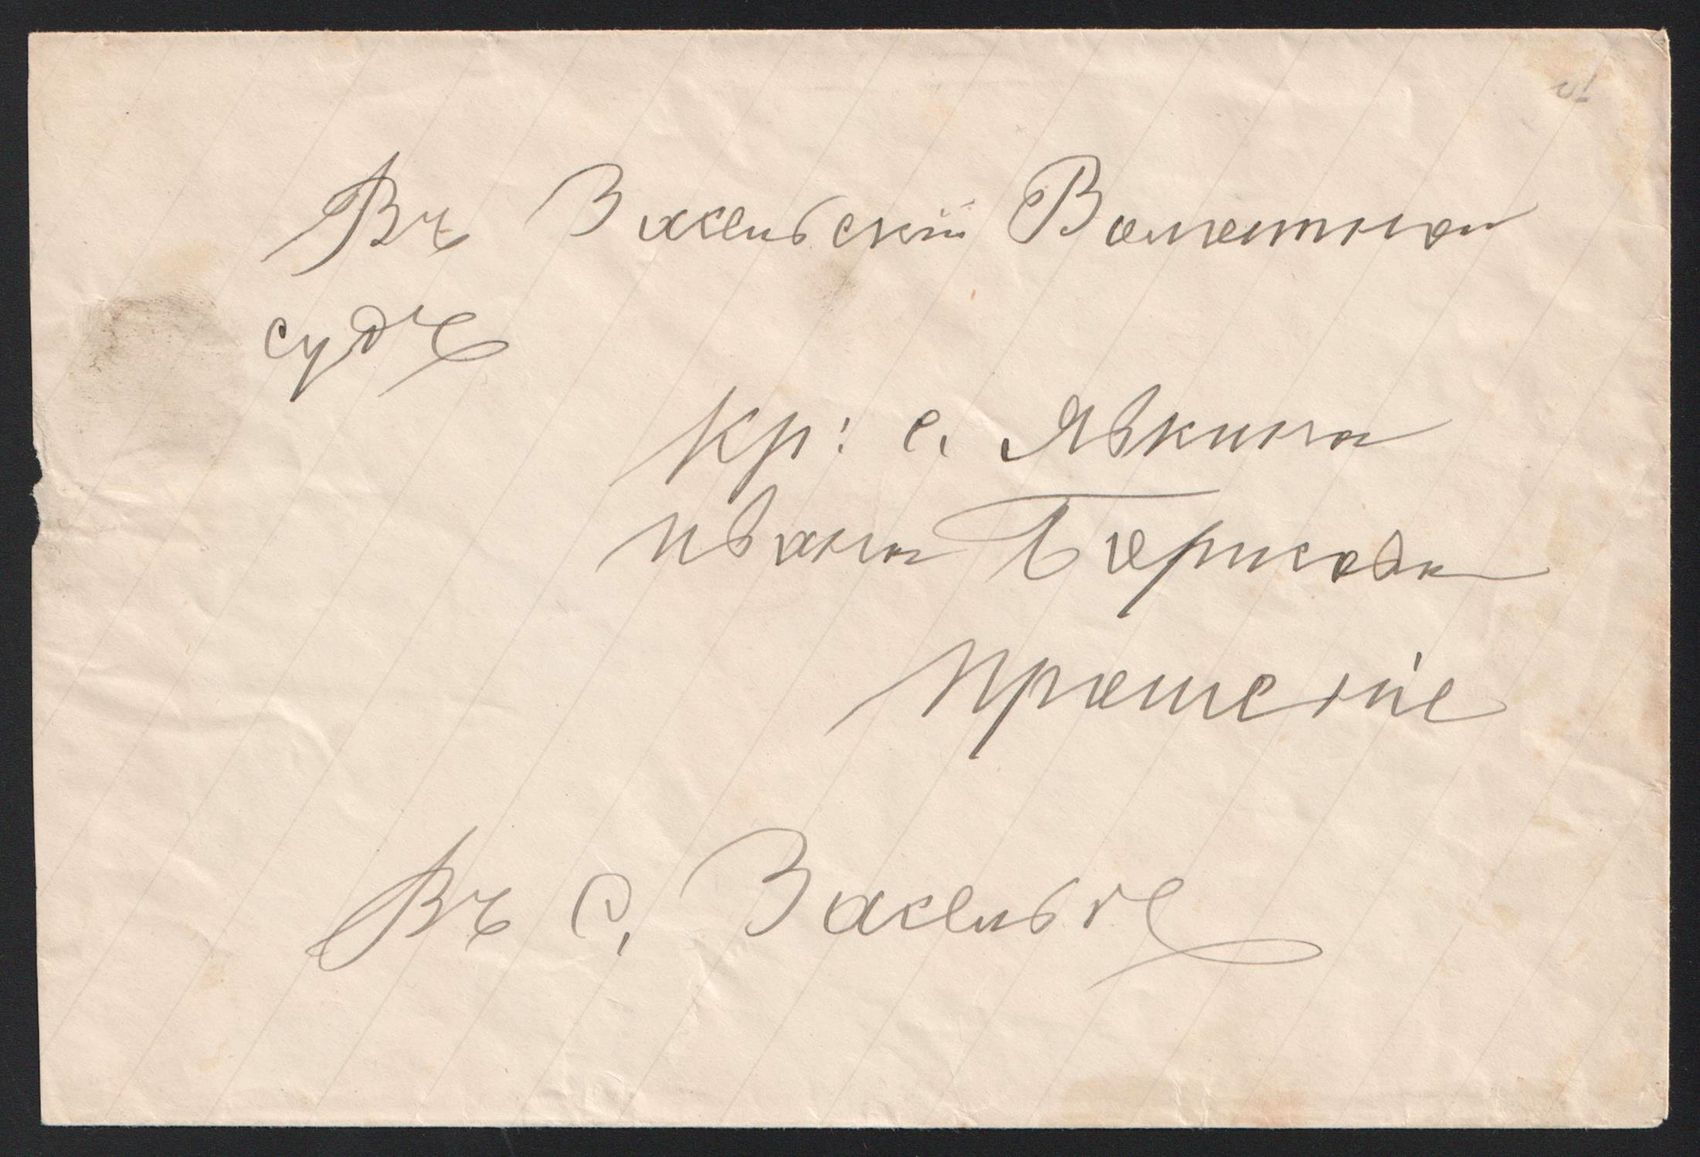 Въ Засельскій Волостной
судъ
кр: с. Явкина
Ивана Борисова
прошеніе
Въ с. Заселье